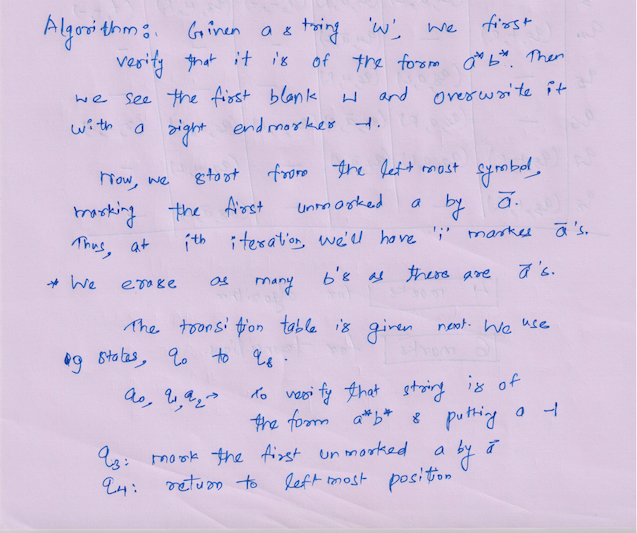 Algorithm: Given a string 'w', we first
verify that it is of the form a*b*. Then
we see the first blank ⊔ and overwrite it
with a right endmarker ⊣.
Now, we start from the left most symbol,
marking the first unmarked a by a̅.
Thus, at ith iteration, we'll have 'i' markes a̅'s.
* We erase as many b's as there are a̅'s.
The transition table is given next. We use
9 states, q0 to q8.
q0, q1, q2 → to verify that string is of
the form a*b* & putting a ⊣
q3: mark the first unmarked a by a̅
q4: return to left most position